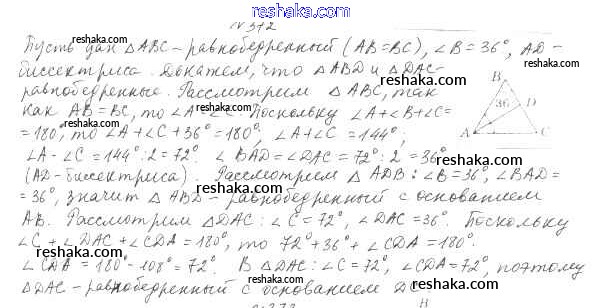 www.reshaka.com
№ 312
Пусть дан △ABC - равнобедренный (AB=BC), ∠B = 36°, AD-
биссектриса. Докажем, что △ABD и △DAC-
равнобедренные. Рассмотрим △ABC, так
как AB=BC, то ∠A=∠C. Поскольку ∠A+∠B+∠C=
=180°, то ∠A+∠C+36°=180°, ∠A+∠C=144°,
∠A-∠C=144°:2=72°. ∠BAD=∠DAC=72°:2=36°
(AD-биссектриса). Рассмотрим △ADB: ∠B=36°, ∠BAD=
=36°, значит △ABD - равнобедренный с основанием
AB. Рассмотрим △DAC: ∠C=72°, ∠DAC=36°. Поскольку
∠C+∠DAC+∠CDA=180°, то 72°+36°+∠CDA=180°.
∠CDA=180°-108°=72°. В △DAC: ∠C=72°, ∠CDA=72°, поэтому
△DAC-равнобедренный с основанием DC.
B
36
D
A
C
reshaka.com
reshaka.com
reshaka.com
reshaka.com
reshaka.com
reshaka.com
reshaka.com
reshaka.com
reshaka.com
reshaka.com
reshaka.com
reshaka.com